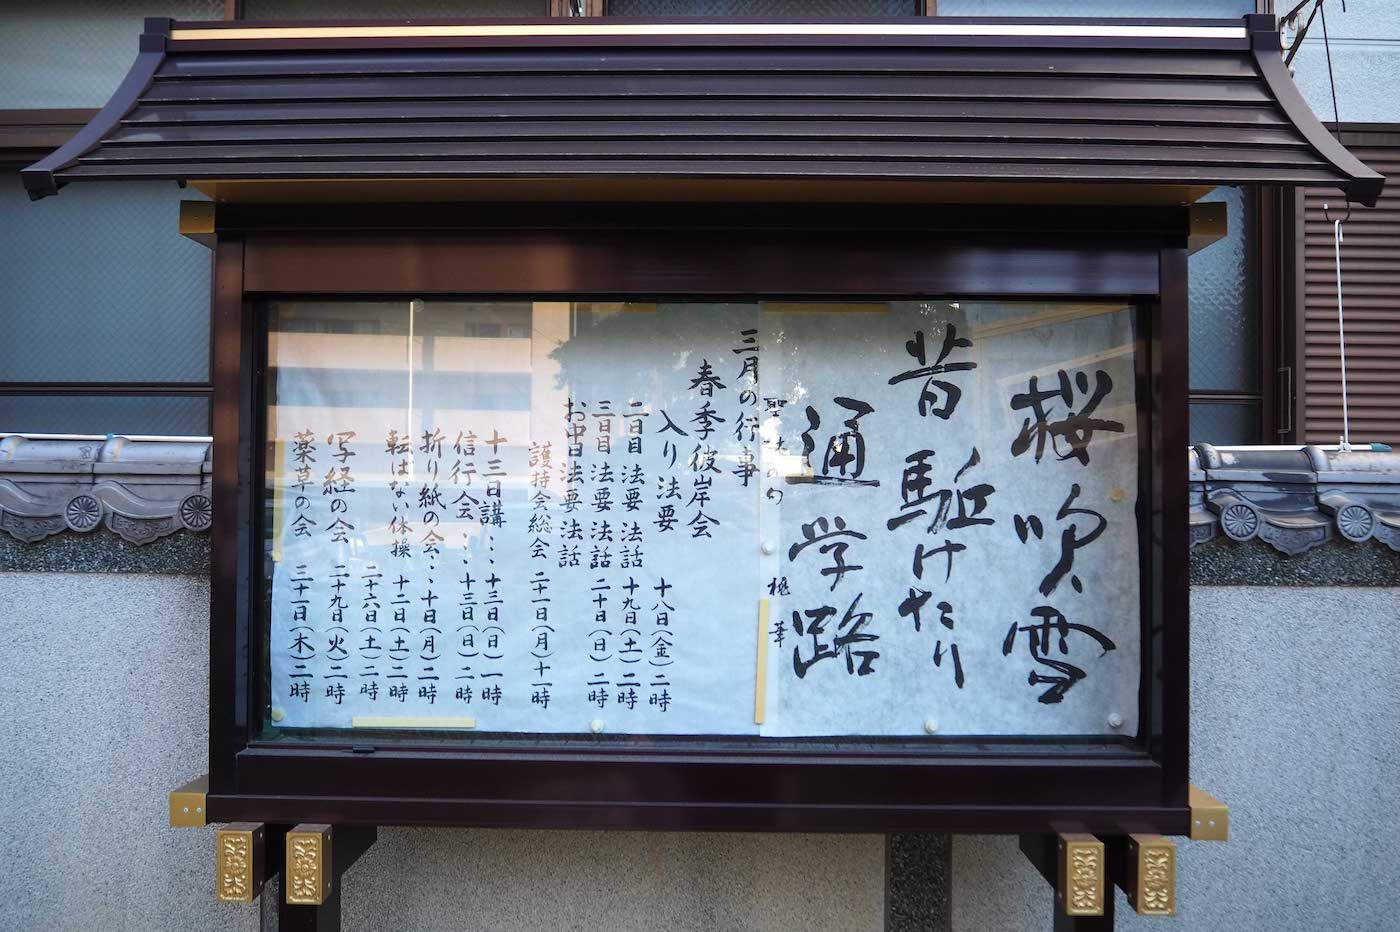 桜吹雪
昔駈けたり
通学路
桃華
三月の行事
春季彼岸会
入り法要 十八日(金)二時
二日目 法要 法話 十九日(土)二時
三日目 法要 法話 二十日(日)二時
お中日 法要 法話
護持会総会 二十一日(月)十一時
十三日講・・・十三日(日)一時
信行会・・・十三日(日)二時
折り紙の会・・・十日(月)二時
転ばない体操 十二日(土)二時
二十六日(土)二時
写経の会 二十九日(火)二時
薬草の会 三十一日(木)二時